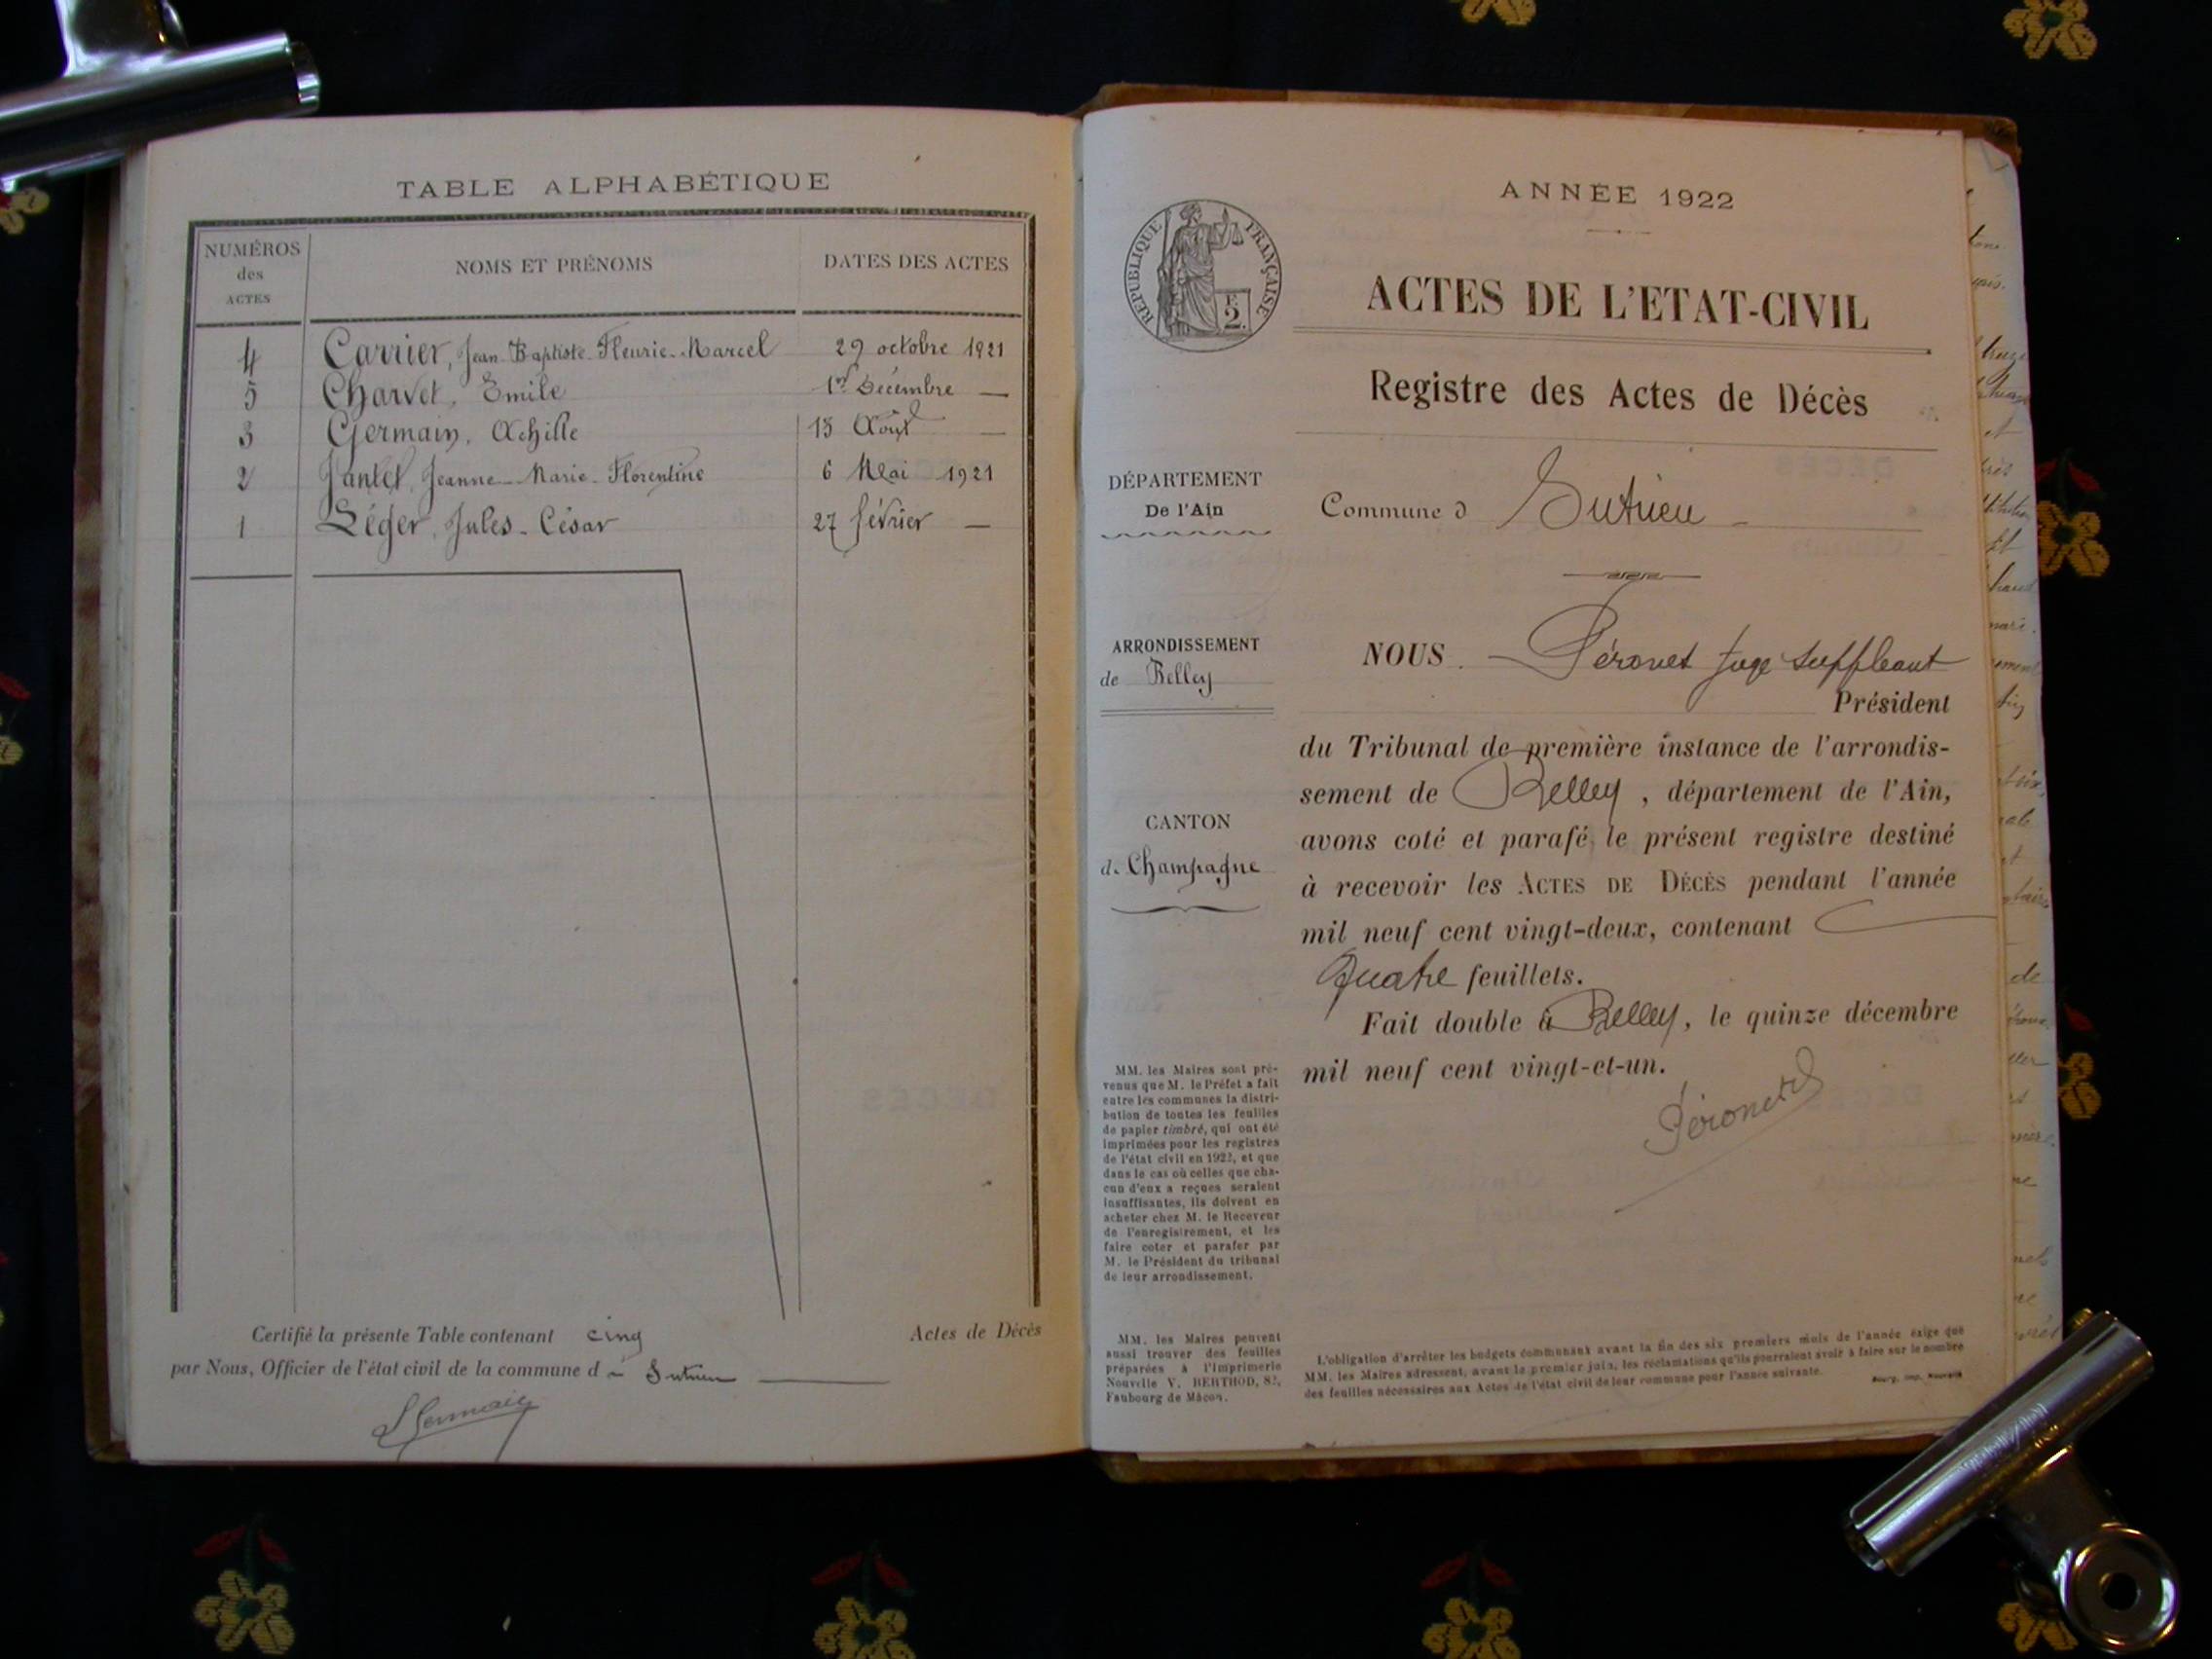 TABLE ALPHABÉTIQUE
NUMÉROS des ACTES NOMS ET PRÉNOMS DATES DES ACTES
4 Carrier, Jean-Baptiste-Fleurie-Marcel 29 octobre 1921
5 Charvet, Emile 1er Décembre —
3 Germain, Achille 15 Août —
2 Jantet, Jeanne-Marie-Florentine 6 Mai 1921
1 Léger, Jules-César 27 février —
Certifié la présente Table contenant cinq Actes de Décès
par Nous, Officier de l'état civil de la commune d e Sutrieu
Germain
ANNÉE 1922
RÉPUBLIQUE FRANÇAISE
E. 2.
ACTES DE L'ETAT-CIVIL
Registre des Actes de Décès
DÉPARTEMENT
De l'Ain
Commune d Sutrieu
ARRONDISSEMENT
de Belley
NOUS Péronet Juge suppléant
Président
du Tribunal de première instance de l'arrondis-
sement de Belley, département de l'Ain,
avons coté et parafé le présent registre destiné
à recevoir les ACTES DE DÉCÈS pendant l'année
mil neuf cent vingt-deux, contenant
Quatre feuillets.
Fait double à Belley, le quinze décembre
mil neuf cent vingt-et-un.
Péronet
CANTON
de Champagne
MM. les Maires sont pré-
venus que M. le Préfet a fait
entre les communes la distri-
bution de toutes les feuilles
de papier timbré, qui ont été
imprimées pour les registres
de l'état civil en 1922, et que
dans le cas où celles que cha-
cun d'eux a reçues seraient
insuffisantes, ils doivent en
acheter chez M. le Receveur
de l'enregistrement, et les
faire coter et parafer par
M. le Président du tribunal
de leur arrondissement.
MM. les Maires peuvent
aussi trouver des feuilles
préparées à l'Imprimerie
Nouvelle V. BERTHOD, 82,
Faubourg de Mâcon.
L'obligation d'arrêter les budgets communaux avant la fin des six premiers mois de l'année exige que
MM. les Maires adressent, avant le premier juin, les réclamations qu'ils pourraient avoir à faire sur le nombre
des feuilles nécessaires aux Actes de l'état civil de leur commune pour l'année suivante.
Bourg, imp. Nouvelle